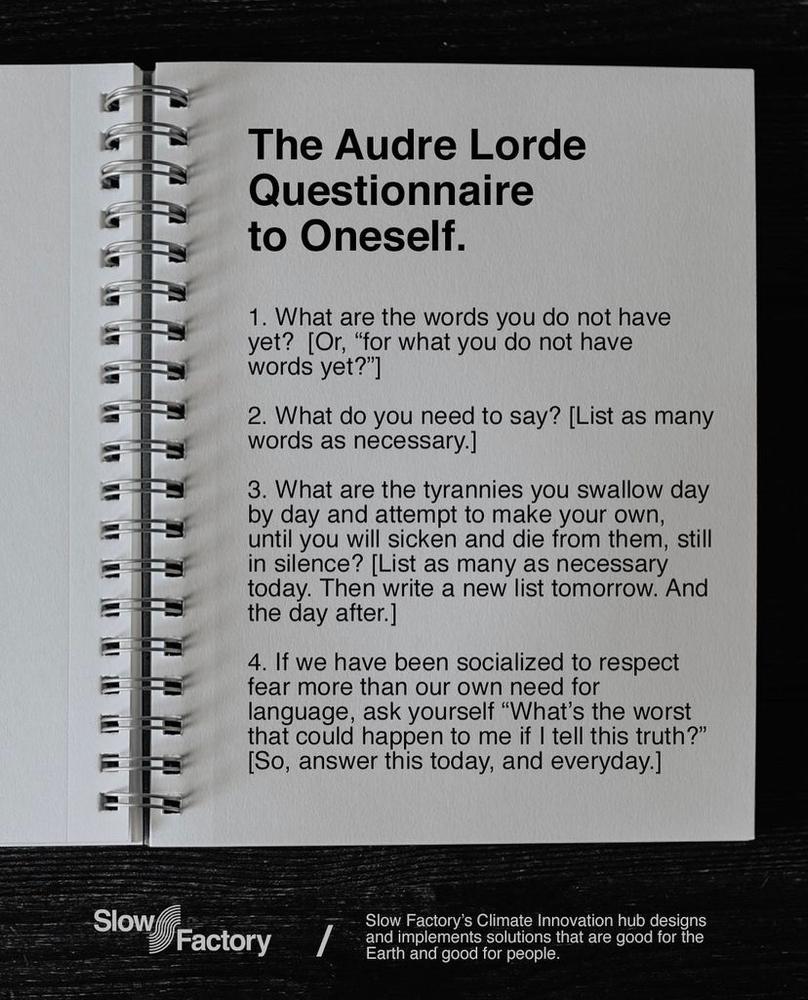 The Audre Lorde
Questionnaire
to Oneself.
1. What are the words you do not have
yet?  [Or, “for what you do not have
words yet?”]
2. What do you need to say? [List as many
words as necessary.]
3. What are the tyrannies you swallow day
by day and attempt to make your own,
until you will sicken and die from them, still
in silence? [List as many as necessary
today. Then write a new list tomorrow. And
the day after.]
4. If we have been socialized to respect
fear more than our own need for
language, ask yourself “What’s the worst
that could happen to me if I tell this truth?”
[So, answer this today, and everyday.]
Slow
Factory
/
Slow Factory’s Climate Innovation hub designs
and implements solutions that are good for the
Earth and good for people.